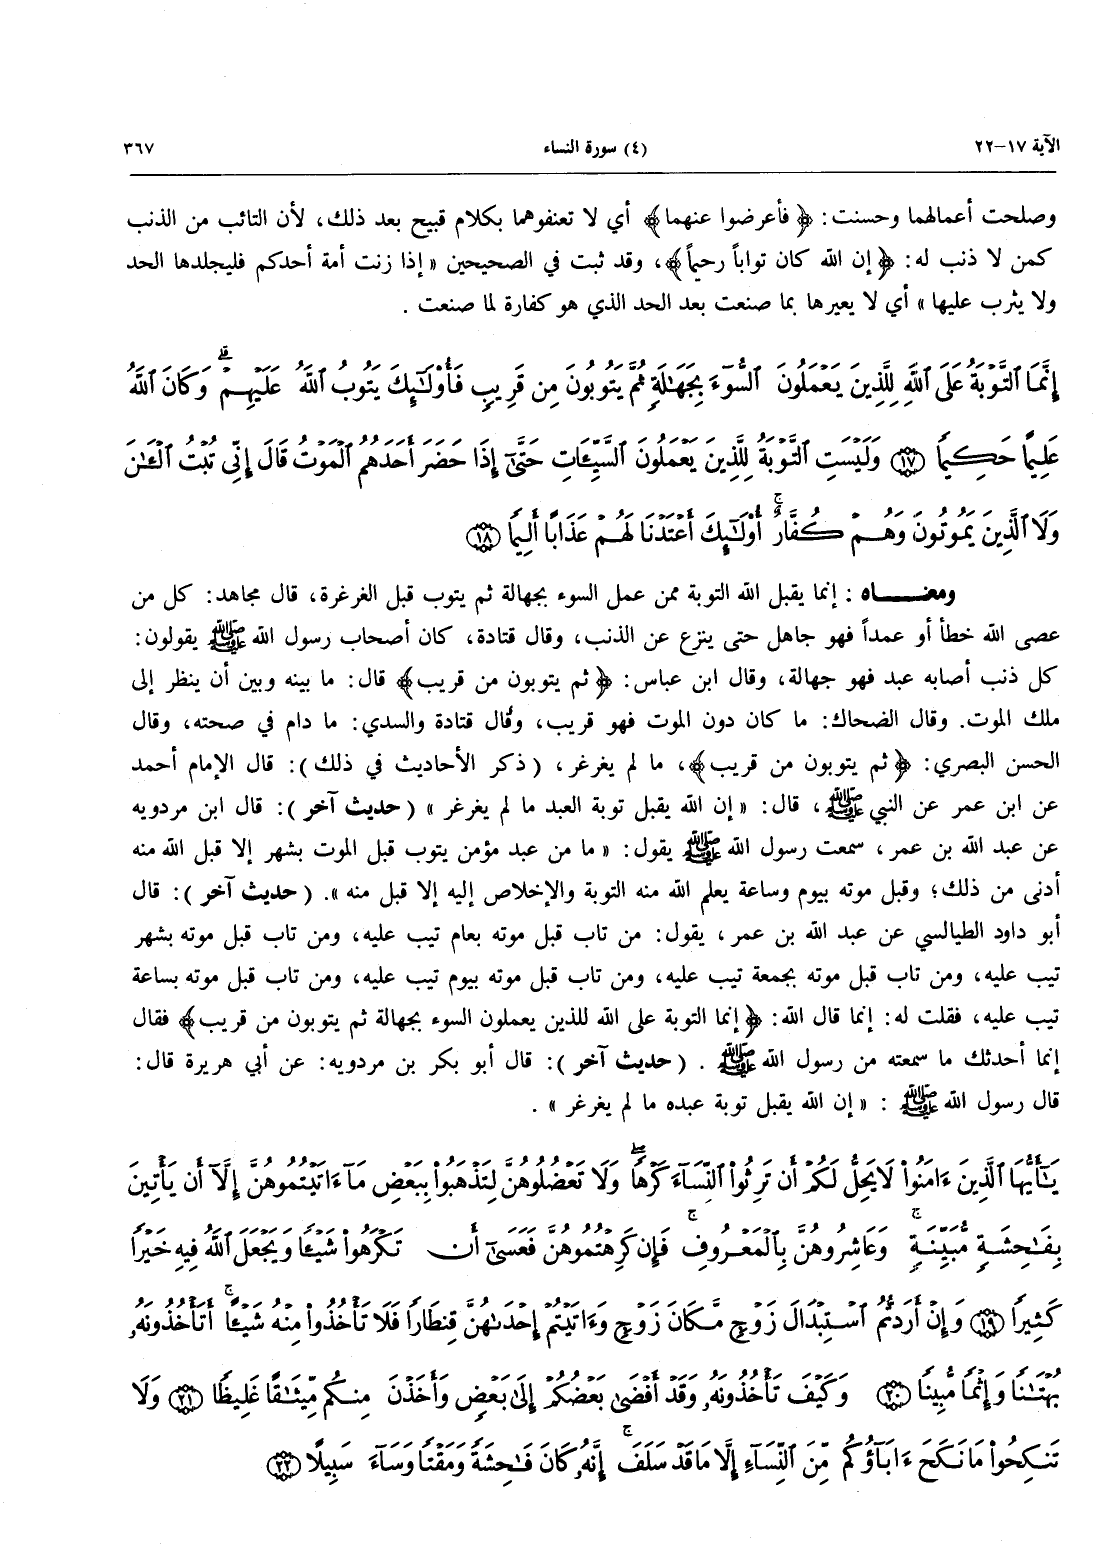 الآية ١٧-٢٢ (٤) سورة النساء ٣٦٧
وصلحت أعمالهما وحسنت: ﴿ فأعرضوا عنهما﴾ أي لا تعنفوهما بكلام قبيح بعد ذلك، لأن التائب من الذنب
كمن لا ذنب له: ﴿ إن الله كان تواباً رحيماً﴾، وقد ثبت في الصحيحين « إذا زنت أمة أحدكم فليجلدها الحد
ولا يثرب عليها » أي لا يعيرها بما صنعت بعد الحد الذي هو كفارة لما صنعت .
إِنَّمَا ٱلتَّوْبَةُ عَلَى ٱللَّهِ لِلَّذِينَ يَعْمَلُونَ ٱلسُّوٓءَ بِجَهَٰلَةٍ ثُمَّ يَتُوبُونَ مِن قَرِيبٍ فَأُو۟لَٰٓئِكَ يَتُوبُ ٱللَّهُ عَلَيْهِمْ ۗ وَكَانَ ٱللَّهُ
عَلِيمًا حَكِيمًا ﴿١٧﴾ وَلَيْسَتِ ٱلتَّوْبَةُ لِلَّذِينَ يَعْمَلُونَ ٱلسَّيِّـَٔاتِ حَتَّىٰٓ إِذَا حَضَرَ أَحَدَهُمُ ٱلْمَوْتُ قَالَ إِنِّى تُبْتُ ٱلْـَٰٔنَ
وَلَا ٱلَّذِينَ يَمُوتُونَ وَهُمْ كُفَّارٌ ۚ أُو۟لَٰٓئِكَ أَعْتَدْنَا لَهُمْ عَذَابًا أَلِيمًا ﴿١٨﴾
ومعنــــاه : إنما يقبل الله التوبة ممن عمل السوء بجهالة ثم يتوب قبل الغرغرة، قال مجاهد: كل من
عصى الله خطأ أو عمداً فهو جاهل حتى ينزع عن الذنب، وقال قتادة، كان أصحاب رسول الله ﷺ يقولون:
كل ذنب أصابه عبد فهو جهالة، وقال ابن عباس: ﴿ ثم يتوبون من قريب﴾ قال: ما بينه وبين أن ينظر إلى
ملك الموت. وقال الضحاك: ما كان دون الموت فهو قريب، وقال قتادة والسدي: ما دام في صحته، وقال
الحسن البصري: ﴿ ثم يتوبون من قريب﴾، ما لم يغرغر، ( ذكر الأحاديث في ذلك ): قال الإمام أحمد
عن ابن عمر عن النبي ﷺ ، قال: « إن الله يقبل توبة العبد ما لم يغرغر » ( حديث آخر ): قال ابن مردويه
عن عبد الله بن عمر، سمعت رسول الله ﷺ يقول: « ما من عبد مؤمن يتوب قبل الموت بشهر إلا قبل الله منه
أدنى من ذلك؛ وقبل موته بيوم وساعة يعلم الله منه التوبة والإخلاص إليه إلا قبل منه ». ( حديث آخر ): قال
أبو داود الطيالسي عن عبد الله بن عمر، يقول: من تاب قبل موته بعام تيب عليه، ومن تاب قبل موته بشهر
تيب عليه، ومن تاب قبل موته بجمعة تيب عليه، ومن تاب قبل موته بيوم تيب عليه، ومن تاب قبل موته بساعة
تيب عليه، فقلت له: إنما قال الله: ﴿ إنما التوبة على الله للذين يعملون السوء بجهالة ثم يتوبون من قريب﴾ فقال
إنما أحدثك ما سمعته من رسول الله ﷺ . ( حديث آخر ): قال أبو بكر بن مردويه: عن أبي هريرة قال:
قال رسول الله ﷺ : « إن الله يقبل توبة عبده ما لم يغرغر » .
يَٰٓأَيُّهَا ٱلَّذِينَ ءَامَنُوا۟ لَا يَحِلُّ لَكُمْ أَن تَرِثُوا۟ ٱلنِّسَآءَ كَرْهًا ۖ وَلَا تَعْضُلُوهُنَّ لِتَذْهَبُوا۟ بِبَعْضِ مَآ ءَاتَيْتُمُوهُنَّ إِلَّآ أَن يَأْتِينَ
بِفَٰحِشَةٍ مُّبَيِّنَةٍ ۚ وَعَاشِرُوهُنَّ بِٱلْمَعْرُوفِ ۚ فَإِن كَرِهْتُمُوهُنَّ فَعَسَىٰٓ أَن تَكْرَهُوا۟ شَيْـًٔا وَيَجْعَلَ ٱللَّهُ فِيهِ خَيْرًا
كَثِيرًا ﴿١٩﴾ وَإِنْ أَرَدتُّمُ ٱسْتِبْدَالَ زَوْجٍ مَّكَانَ زَوْجٍ وَءَاتَيْتُمْ إِحْدَىٰهُنَّ قِنطَارًا فَلَا تَأْخُذُوا۟ مِنْهُ شَيْـًٔا ۚ أَتَأْخُذُونَهُۥ
بُهْتَٰنًا وَإِثْمًا مُّبِينًا ﴿٢٠﴾ وَكَيْفَ تَأْخُذُونَهُۥ وَقَدْ أَفْضَىٰ بَعْضُكُمْ إِلَىٰ بَعْضٍ وَأَخَذْنَ مِنكُم مِّيثَٰقًا غَلِيظًا ﴿٢١﴾ وَلَا
تَنكِحُوا۟ مَا نَكَحَ ءَابَآؤُكُم مِّنَ ٱلنِّسَآءِ إِلَّا مَا قَدْ سَلَفَ ۚ إِنَّهُۥ كَانَ فَٰحِشَةً وَمَقْتًا وَسَآءَ سَبِيلًا ﴿٢٢﴾